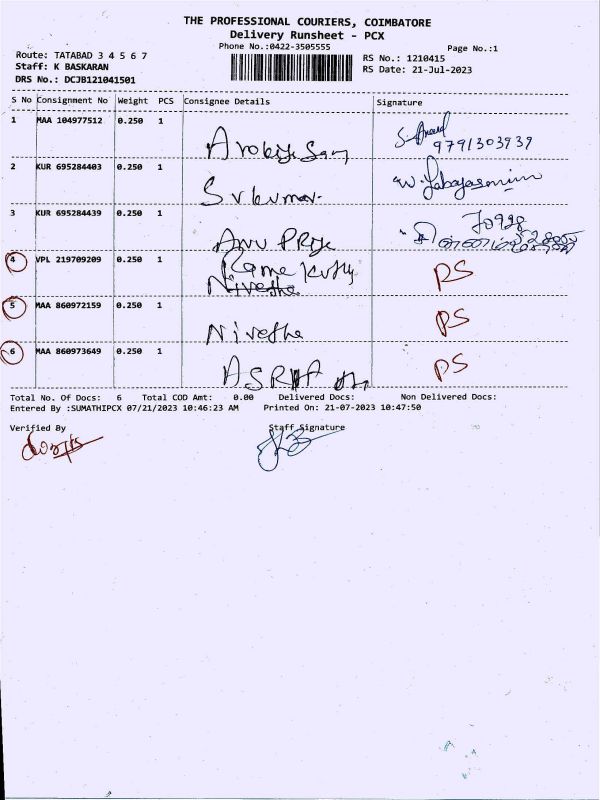 THE PROFESSIONAL COURIERS, COIMBATORE
Delivery Runsheet - PCX
Phone No.:0422-3505555
Page No.:1
Route: TATABAD 3 4 5 6 7
RS No.: 1210415
Staff: K BASKARAN
RS Date: 21-Jul-2023
DRS No.: DCJB121041501
S No Consignment No Weight PCS Consignee Details Signature
1 MAA 104977512 0.250 1
9791303939
2 KUR 695284403 0.250 1
3 KUR 695284439 0.250 1
Anu Priya
4 VPL 219709209 0.250 1 RS
Nivetha
5 MAA 860972159 0.250 1 RS
Nivetha
6 MAA 860973649 0.250 1 RS
Total No. Of Docs: 6 Total COD Amt: 0.00 Delivered Docs: Non Delivered Docs:
Entered By :SUMATHIPCX 07/21/2023 10:46:23 AM Printed On: 21-07-2023 10:47:50
Verified By Staff Signature